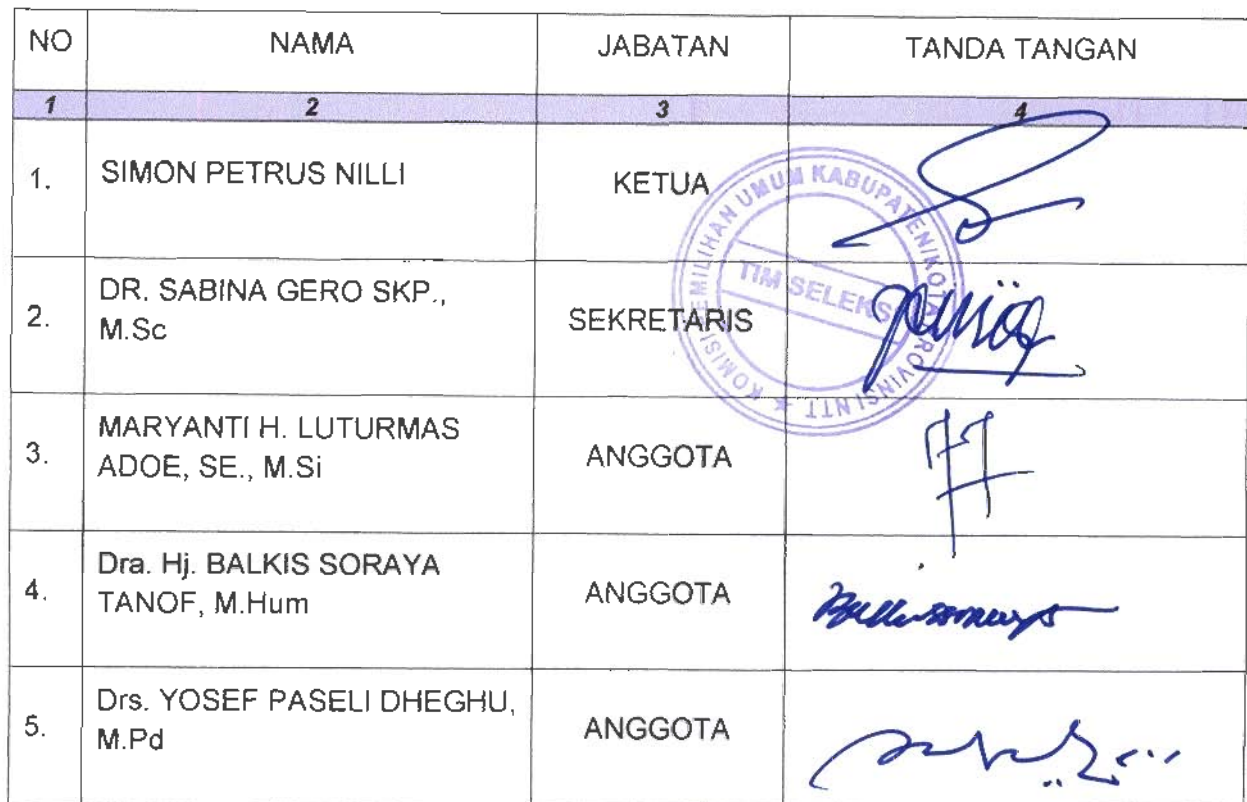 NO NAMA JABATAN TANDA TANGAN
1 2 3 4
1. SIMON PETRUS NILLI KETUA
2. DR. SABINA GERO SKP.,
M.Sc SEKRETARIS
3. MARYANTI H. LUTURMAS
ADOE, SE., M.Si ANGGOTA
4. Dra. Hj. BALKIS SORAYA
TANOF, M.Hum ANGGOTA
5. Drs. YOSEF PASELI DHEGHU,
M.Pd ANGGOTA
KOMISI PEMILIHAN UMUM KABUPATEN/KOTA PROVINSI NTT
TIM SELEKSI